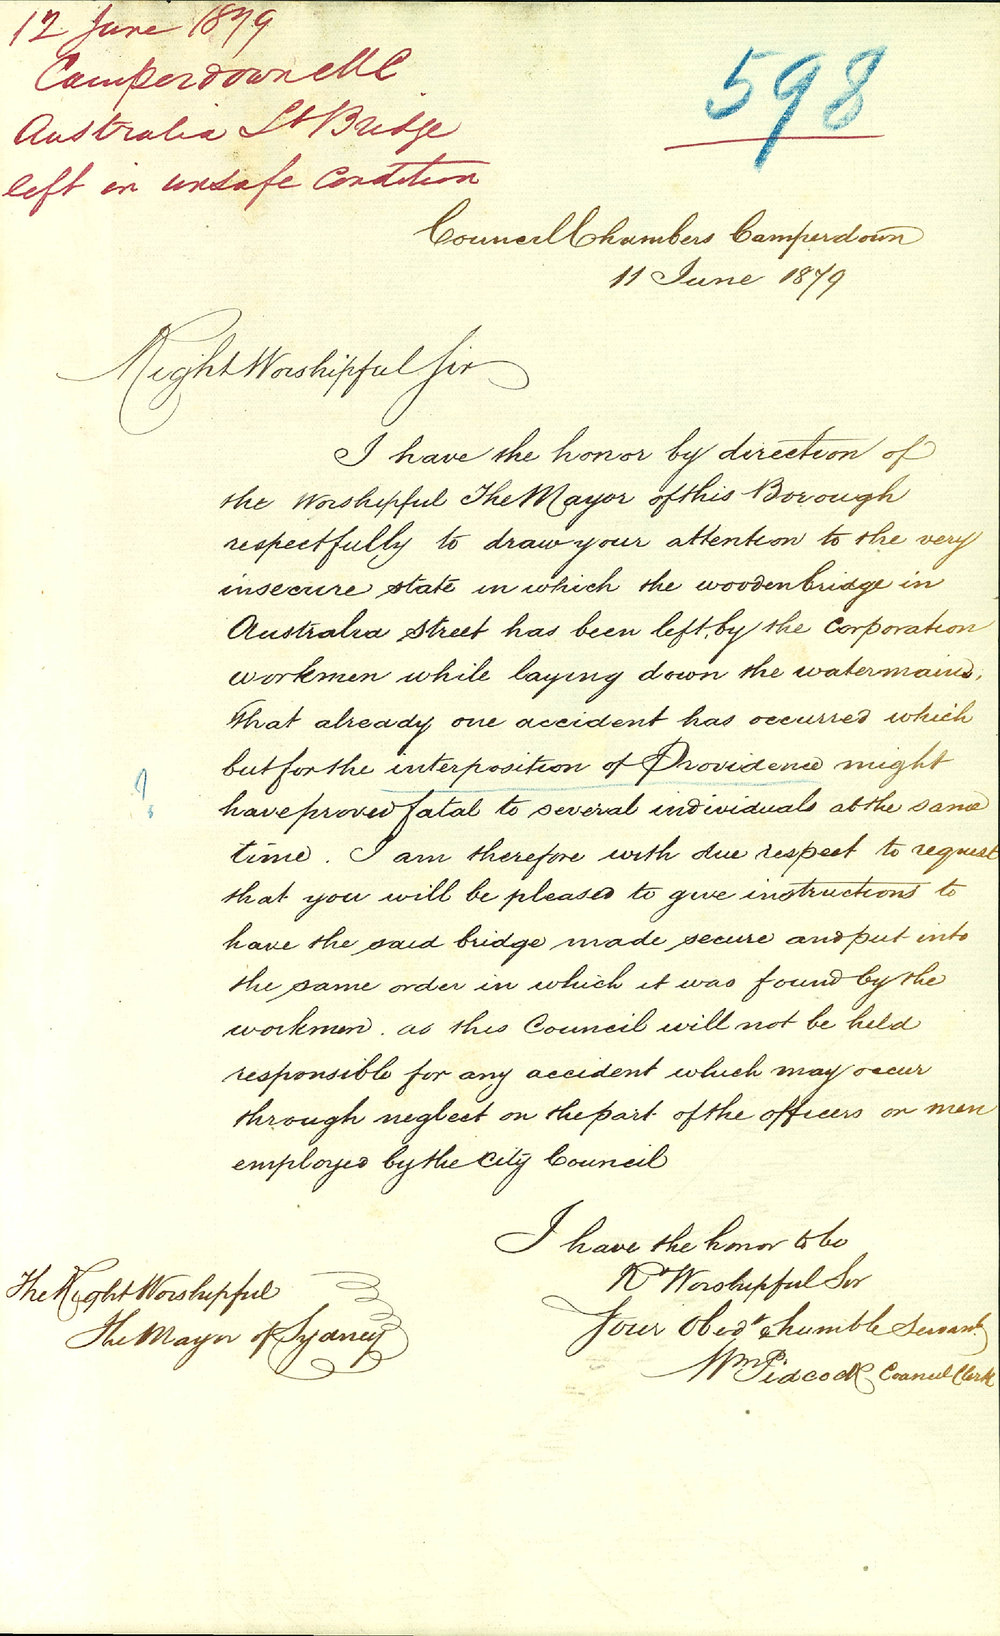 12 June 1879
Camperdown M C
Australia St Bridge
left in unsafe condition
598
Council Chambers Camperdown
11 June 1879
Right Worshipful Sir
I have the honor by direction of
the Worshipful The Mayor of this Borough
respectfully to draw your attention to the very
insecure state in which the wooden bridge in
Australia Street has been left, by the Corporation
workmen while laying down the watermains,
that already one accident has occurred which
but for the interposition of Providence might
have proved fatal to several individuals at the same
time. I am therefore with due respect to request
that you will be pleased to give instructions to
have the said bridge made secure and put into
the same order in which it was found by the
workmen. as this Council will not be held
responsible for any accident which may occur
through neglect on the part of the officers or men
employed by the City Council
I have the honor to be
Rt Worshipful Sir
Your Obedt & humble Servant
Wm Pidcock Council Clerk
The Right Worshipful
The Mayor of Sydney
?